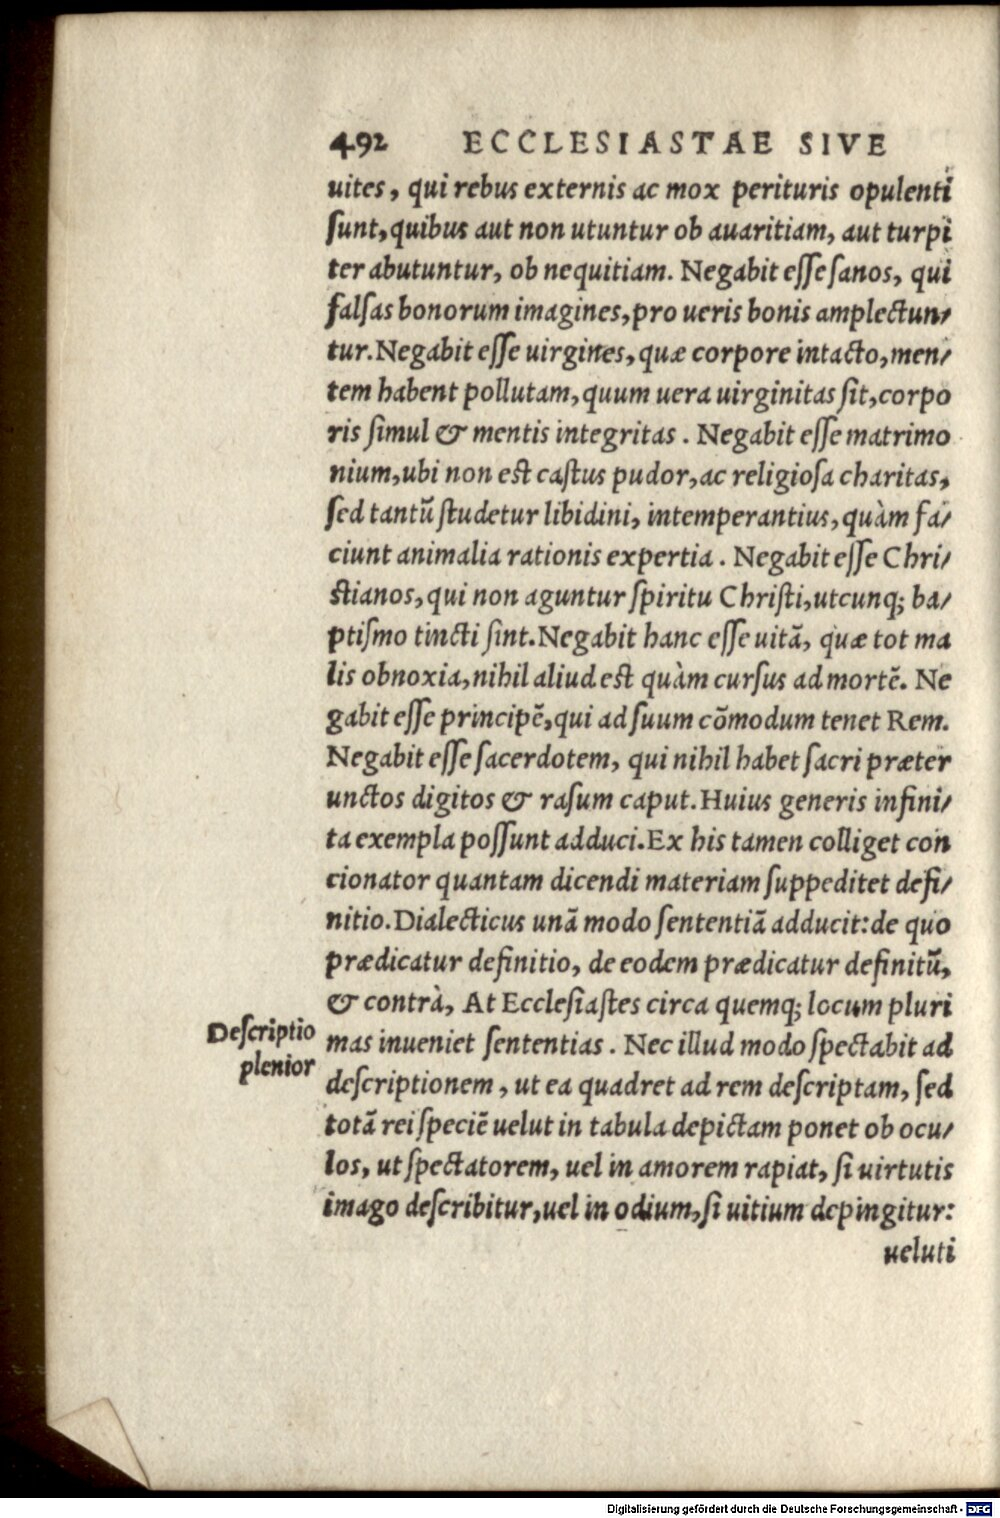 492 ECCLESIASTAE SIVE
uites, qui rebus externis ac mox perituris opulenti
ſunt, quibus aut non utuntur ob auaritiam, aut turpi
ter abutuntur, ob nequitiam. Negabit eſſe ſanos, qui
falſas bonorum imagines, pro ueris bonis amplectun/
tur. Negabit eſſe uirgines, quæ corpore intacto, men/
tem habent pollutam, quum uera uirginitas ſit, corpo
ris ſimul & mentis integritas. Negabit eſſe matrimo
nium, ubi non est caſtus pudor, ac religioſa charitas,
ſed tantũ ſtudetur libidini, intemperantius, quàm fa/
ciunt animalia rationis expertia. Negabit eſſe Chri/
ſtianos, qui non aguntur ſpiritu Chriſti, utcunq; ba/
ptiſmo tincti ſint. Negabit hanc eſſe uitã, quæ tot ma
lis obnoxia, nihil aliud est quàm curſus ad mortẽ. Ne
gabit eſſe principẽ, qui ad ſuum cõmodum tenet Rem.
Negabit eſſe ſacerdotem, qui nihil habet ſacri præter
unctos digitos & raſum caput. Huius generis infini/
ta exempla poſſunt adduci. Ex his tamen colliget con
cionator quantam dicendi materiam ſuppeditet defi/
nitio. Dialecticus unã modo ſententiã adducit: de quo
prædicatur definitio, de eodem prædicatur definitũ,
& contrà, At Eccleſiaſtes circa quemq; locum pluri
Deſcriptio
plenior
mas inueniet ſententias. Nec illud modo ſpectabit ad
deſcriptionem, ut ea quadret ad rem deſcriptam, ſed
totã rei ſpeciẽ uelut in tabula depictam ponet ob ocu/
los, ut ſpectatorem, uel in amorem rapiat, ſi uirtutis
imago deſcribitur, uel in odium, ſi uitium depingitur:
ueluti
Digitalisierung gefördert durch die Deutsche Forschungsgemeinschaft - DFG